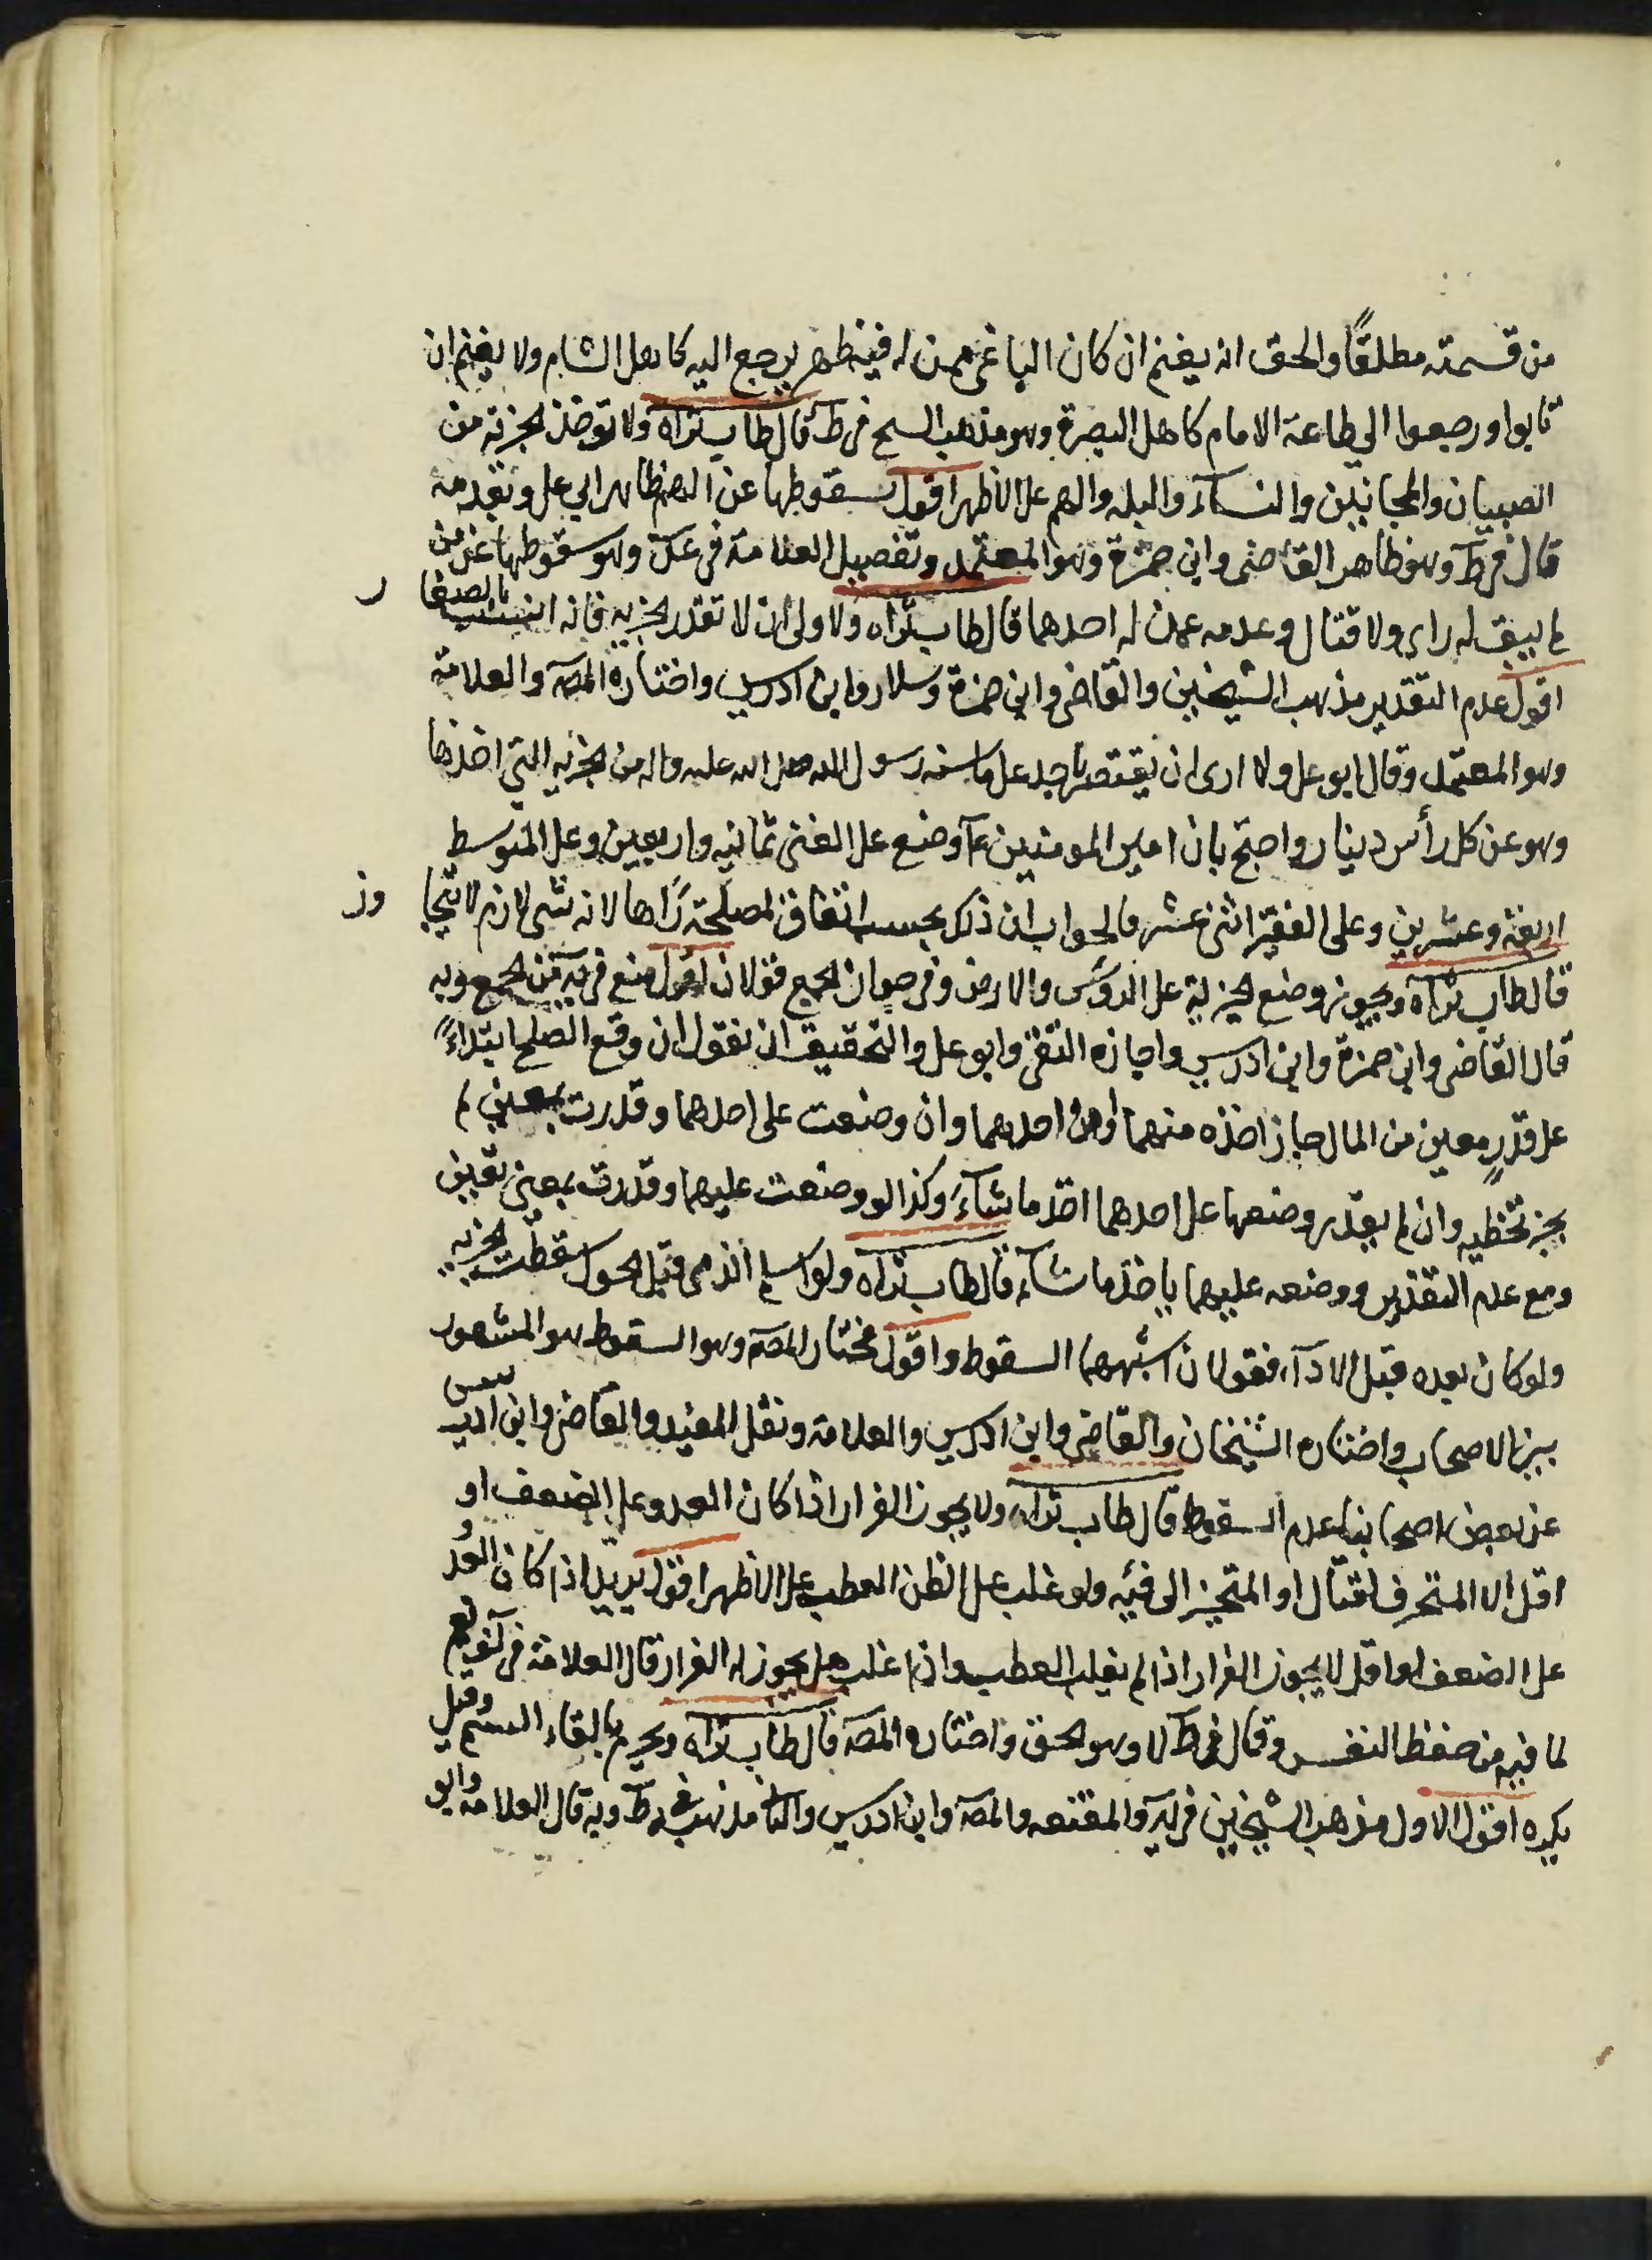 من قسمته مطلقًا والحق انه يغنم ان كان الباغي ممن له فيئة ظهر يرجع اليه كاهل الشام ولا يغنم ان
تابوا ورجعوا الى طاعة الامام كاهل البصرة وهو مذهب الشيخ في ط قال طاب ثراه ولا توخذ الجزية من
الصبيان والمجانين والنسآء والبله والهم على الاظهر اقول سقوطها عن الهم ظاهر ابي على وتقدمه
قال في ط وهو ظاهر القاضى وابن حمزة وهو المعتمد وتفصيل العلامة في عد وهو سقوطها عن من
لم يبق له راى ولا قتال وعدمه عمن له احدهما قال طاب ثراه والاولى ان لا تقدر الجزيه فانه انسب بالصغار
اقول عدم التقدير مذهب الشيخين والقاضى وابن حمزة وسلار وابن ادريس واختاره المصـ والعلامة
وهو المعتمد وقال ابو على ولا ارى ان يقتصر باحد على ما سنه رسول الله صلى الله عليه واله من الجزيه التي اخذها
وهو عن كل رأس دينار واحتج بان امير المومنين ع وضع على الغنى ثمانيه واربعين وعلى المتوسط
اربعة وعشرين وعلى الفقير اثنى عشر والجواب ان ذلك بحسب اتفاق لمصلحة رآها لا انه شى لازم لا يتجاوز
قال طاب ثراه ويجوز وضع الجزية على الروس والارض وفي جواز الجمع قولان اقول منع في يه من الجمع وبه
قال القاضى وابن حمزة وابن ادريس واجازه التقى وابو على والتحقيق ان نقول ان وقع الصلح ابتداءً
على قدرٍ معين من المال جاز اخذه منهما او من احدهما وان وضعت على احدهما وقدرت بمعين لم
يجز تخطيه وان لم يقدّر وضعها على احدهما اخذ ما شآء وكذا لو وضعت عليهما وقدرت بمعين تعين
ومع عدم التقدير ووضعه عليهما ياخذ ما شآء قال طاب ثراه ولو اسلم الذمى قبل الحول سقطت الجزيه
ولو كان بعده قبل الادآء فقولان اشبههما السقوط واقول مختار المصـ وهو السقوط هو المشهور
بين الاصحاب واختاره الشيخان والقاضى وابن ادريس والعلامة ونقل المفيد والقاضى وابن ادريس
عن بعض اصحابنا عدم السقوط قال طاب ثراه ولا يجوز الفرار اذا كان العدو على الضعف او
اقل الا المتحرف لقتال او المتحيز الى فئيه ولو غلب على الظن العطب على الاظهر اقول يريد اذا كان العدو
على الضعف او اقل لا يجوز الفرار اذا لم يغلب العطب واذا غلب هل يجوز له الفرار قال العلامة في نعم
لما فيه من حفظ النفس وقال في ط لا وهو الحق واختاره المصـ قال طاب ثراه ويحرم بالقاء السم وقيل
يكره اقول الاول مذهب الشيخين في يه والمقنعه والمصـ وابن ادريس والثانى مذهبه في ط وبه قال العلامة وابو